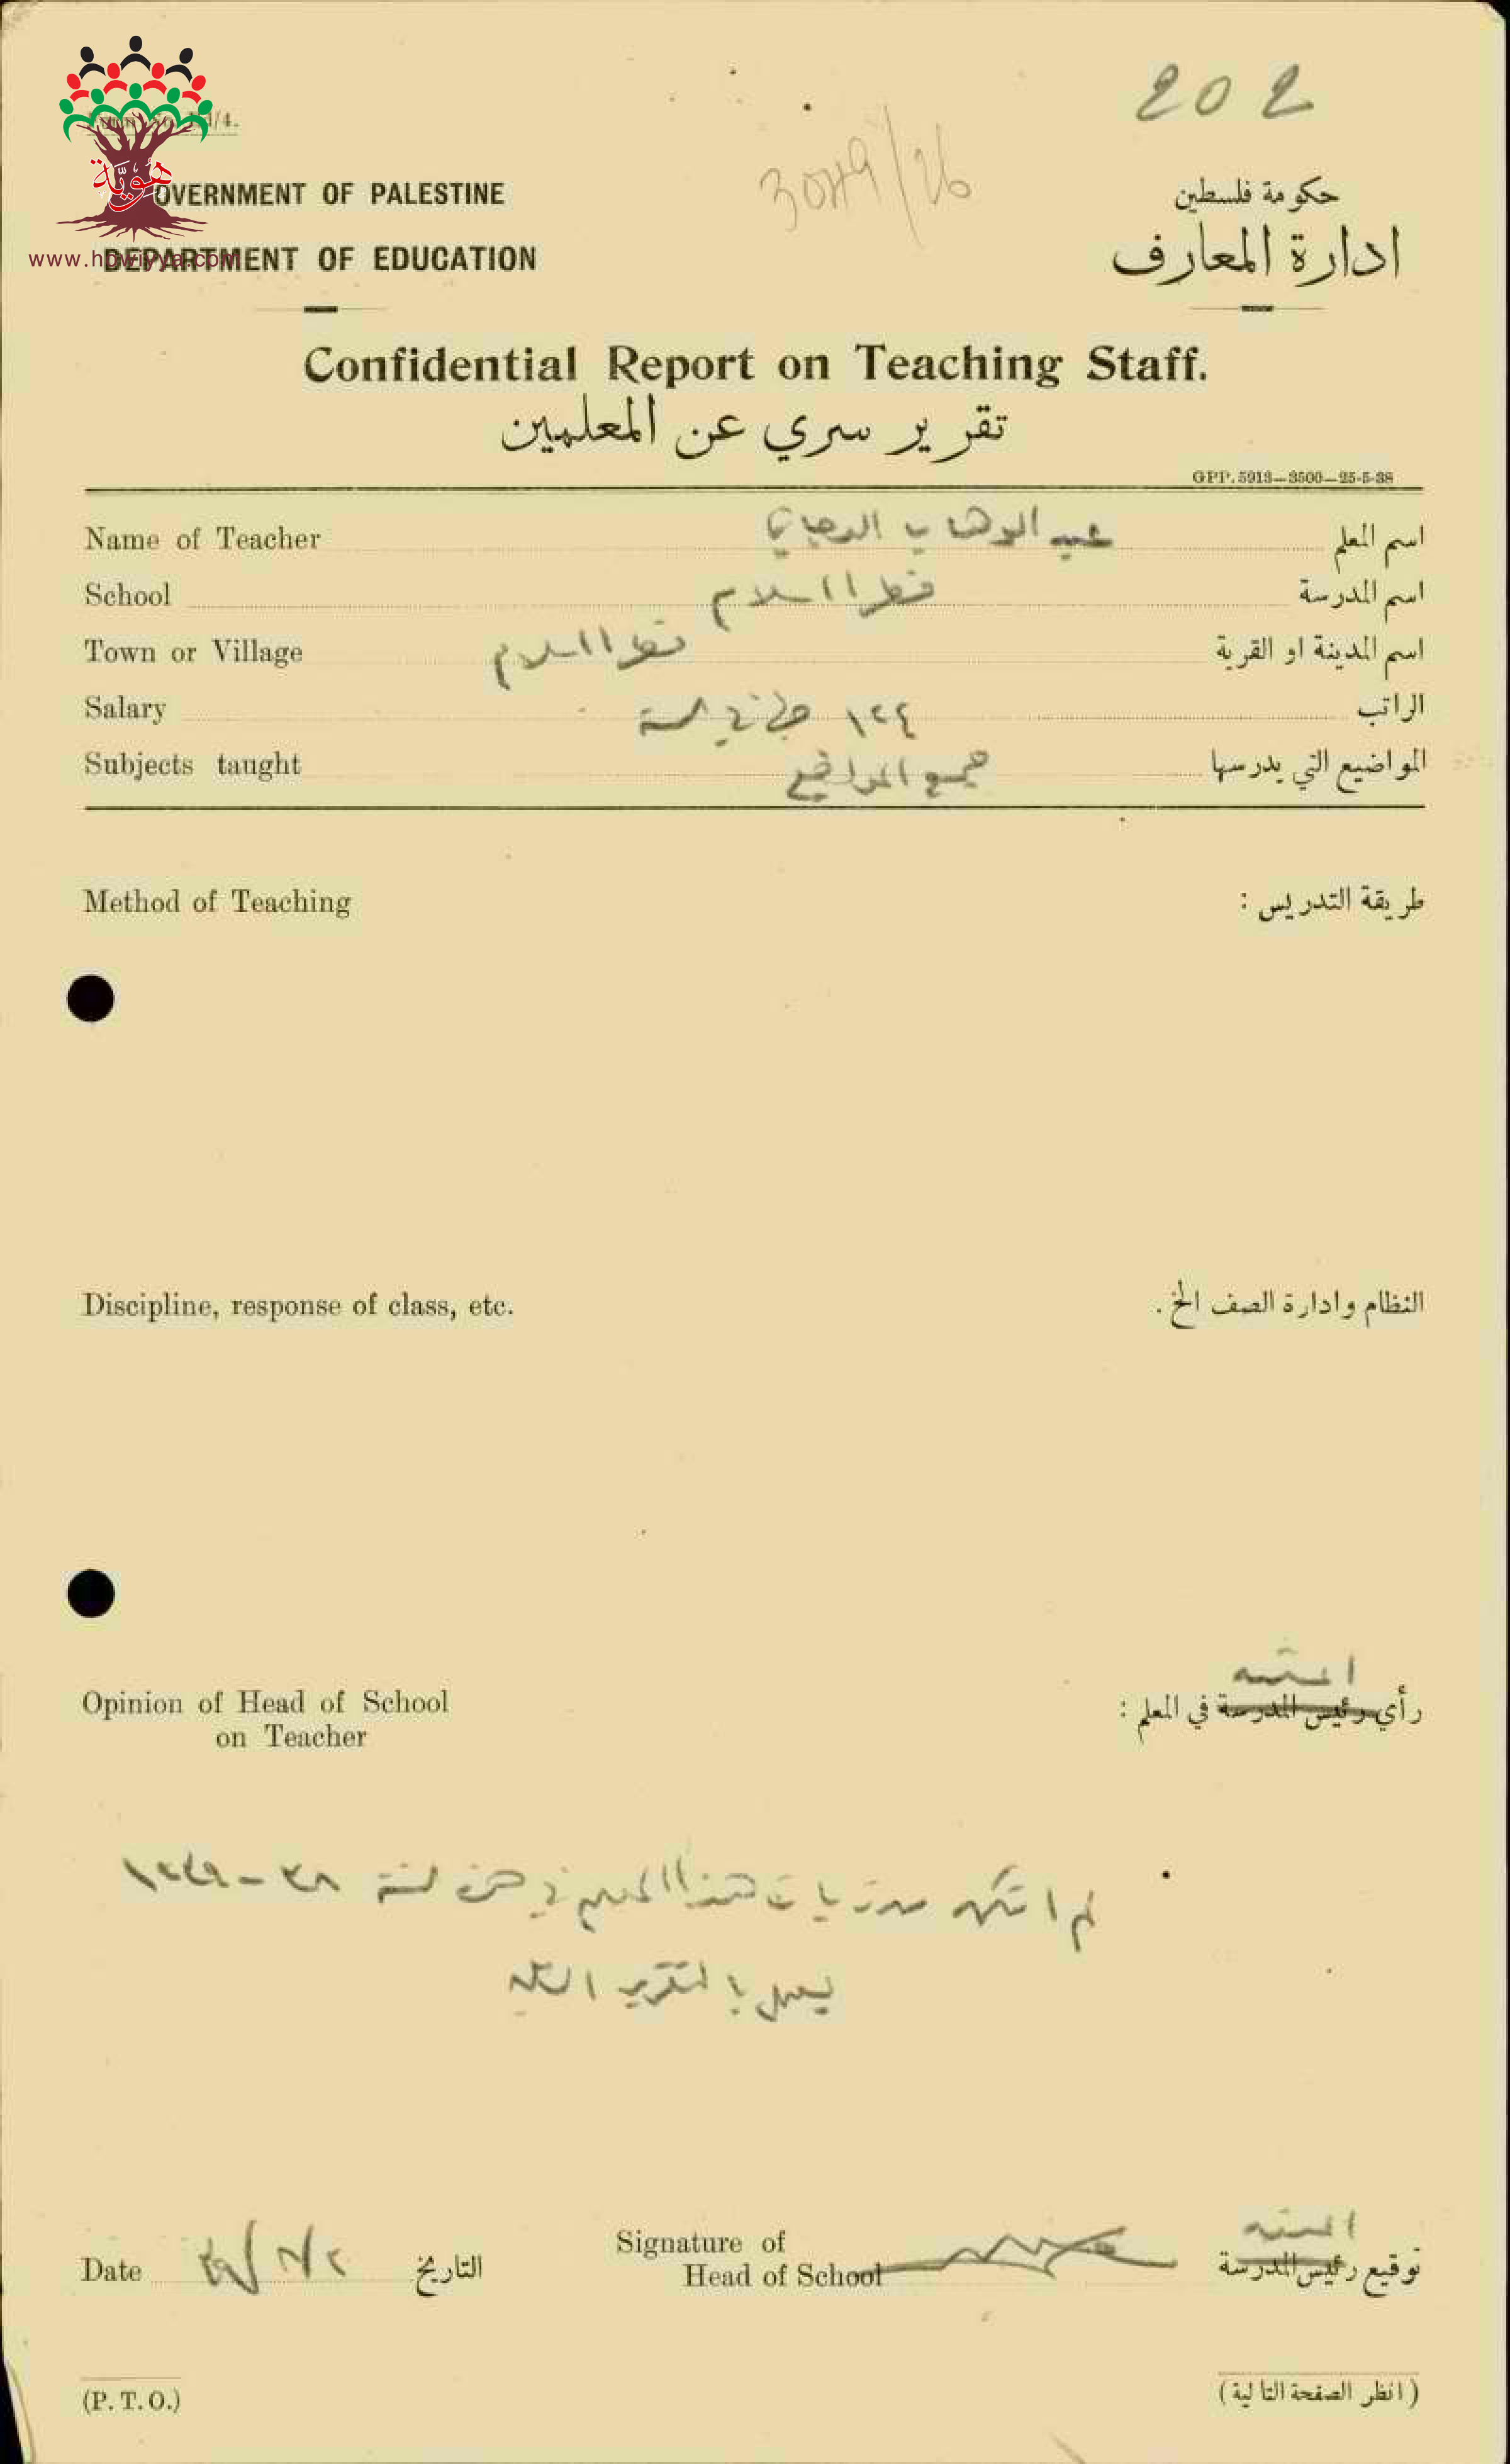 202
3049/26
هوية
www.howiyya.com
GOVERNMENT OF PALESTINE
حكومة فلسطين
DEPARTMENT OF EDUCATION
ادارة المعارف
Confidential Report on Teaching Staff.
تقرير سري عن المعلمين
GPP. 5913—3500—25-5-38
Name of Teacher عبد الوهاب الدجاني اسم المعلم
School اسم المدرسة
Town or Village اسم المدينة او القرية
Salary ١٢٤ في السنة الراتب
Subjects taught جميع المواضيع المواضيع التي يدرسها
Method of Teaching طريقة التدريس :
Discipline, response of class, etc. النظام وادارة الصف الخ .
المفتش
Opinion of Head of School رأي رئيس المدرسة في المعلم :
on Teacher
لم هذا المعلم في سنة ٣٨ - ١٩٣٩
بالتقرير
المفتش
Signature of
Date التاريخ Head of School توقيع رئيس المدرسة
(P. T. O.) ( انظر الصفحة التالية )